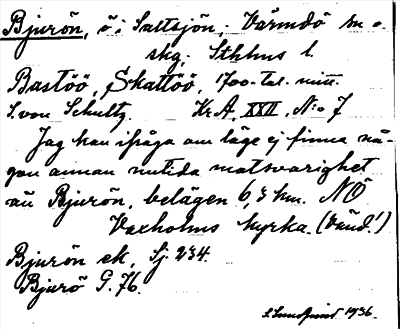 Bjurön, ö i Saltsjön, Värmdö sn o.
skg, Sthlms l.
Bastöö, Skattöö, 1700-tal. mitt.
S. von Schultz. Kr.A, XXII, N:o 7
Jag kan ifråga om läge ej finna nå-
gon annan nutida motsvarighet
än Bjurön, belägen 6,3 km. NÖ
Vaxholms kyrka. (Vänd!)
Bjurön ek, Sj. 234.
Bjurö G. 76.
1936.